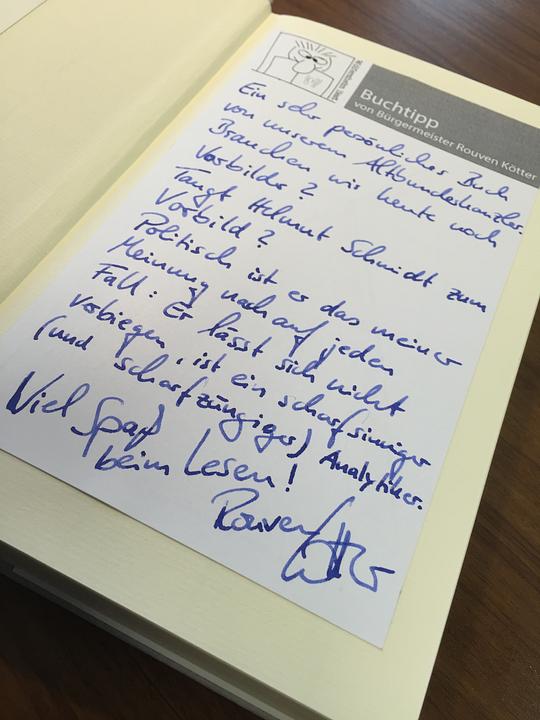 Buchtipp
von Bürgermeister Rouven Kötter
Ein sehr persönliches Buch
von unserem Altbundeskanzler.
Brauchen wir heute noch
Vorbilder?
Taugt Helmut Schmidt zum
Vorbild?
Politisch ist er das meiner
Meinung nach auf jeden
Fall: Er lässt sich nicht
verbiegen, ist ein scharfsinniger
(und scharfzüngiger) Analytiker.
Viel Spaß
beim Lesen!
Rouven Kötter